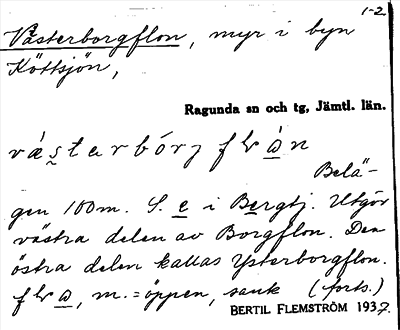 1-2.
Västerborgflon, myr i byn
Köttsjön,
Ragunda sn och tg, Jämtl. län.
Belä-
gen 100m. S. e i Bergtj. Utgör
västra delen av Borgflon. Den
östra delen kallas Ysterborgflon.
m. = öppen, sank (forts.)
BERTIL FLEMSTRÖM 1937.